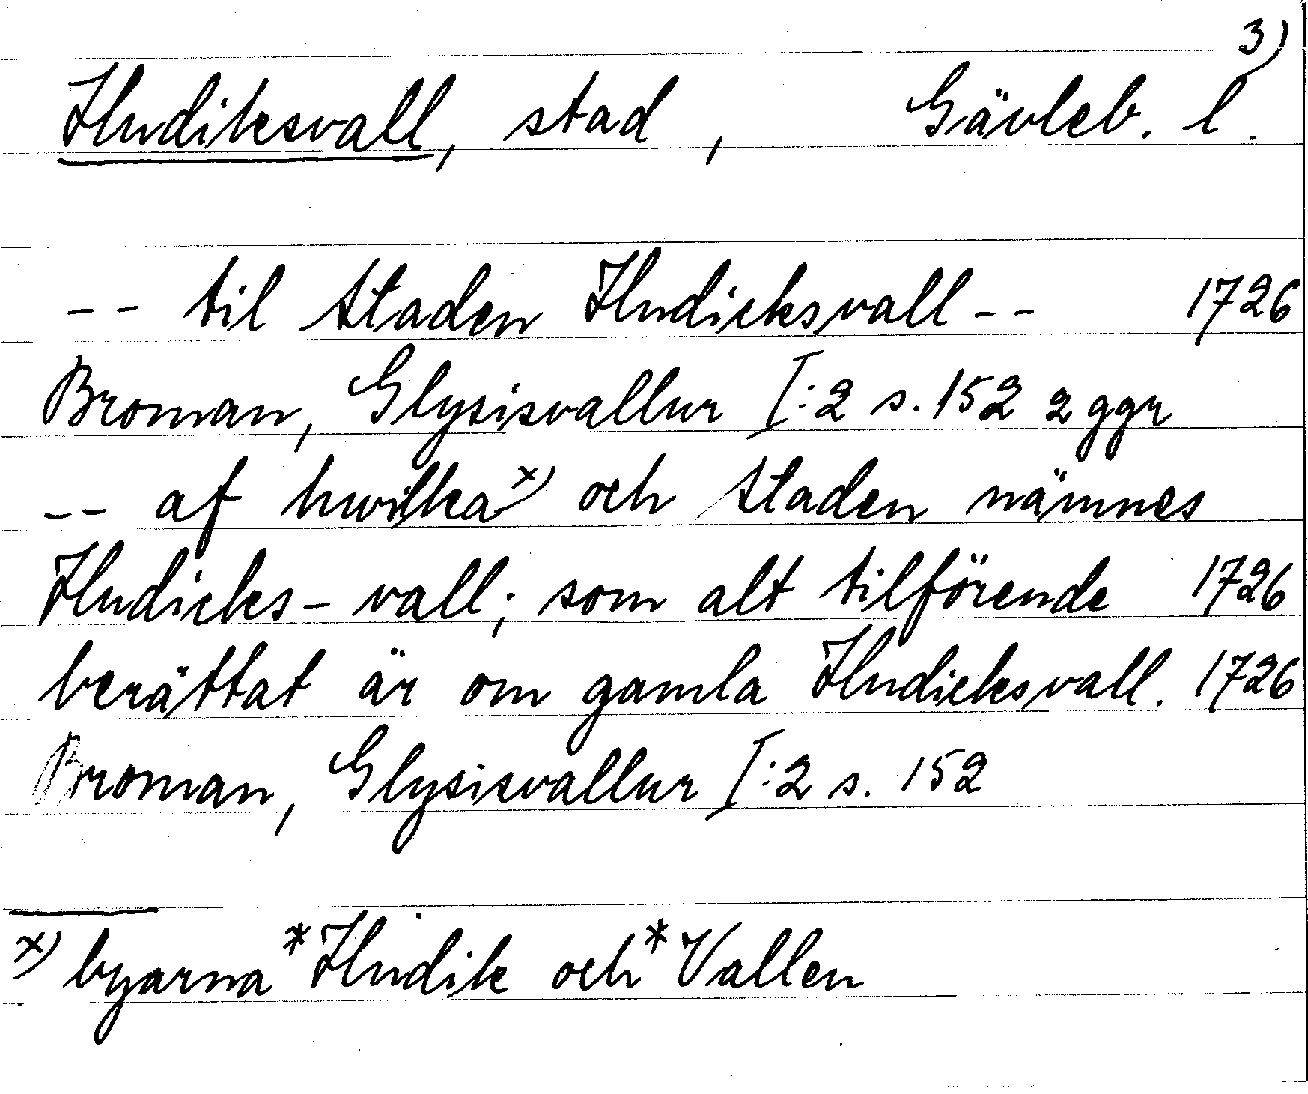 3)
Hudiksvall, stad, Gävleb. l.
-- til staden Hudicksvall -- 1726
Broman, Glysisvallur I:2 s. 152 2 ggr
-- af hwilka x) och staden nämnes
Hudicks-vall; som alt tilförende 1726
berättat är om gamla Hudicksvall. 1726
Broman, Glysisvallur I:2 s. 152
x) byarna *Hudik och *Vallen